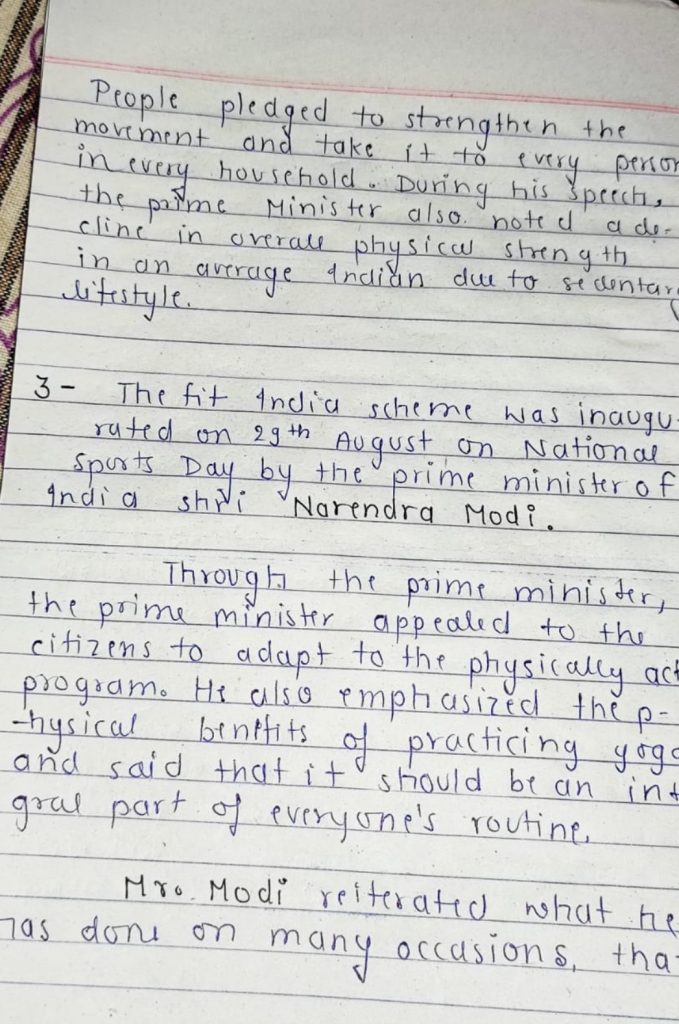 People pledged to strengthen the
movement and take it to every person
in every household. During his speech,
the prime Minister also noted a de-
cline in overall physical strength
in an average Indian due to sedentar
lifestyle.
3- The fit India scheme was inaugu-
rated on 29th August on National
Sports Day by the prime minister of
India shri Narendra Modi.
Through the prime minister,
the prime minister appealed to the
citizens to adapt to the physically act
program. He also emphasized the p-
-hysical benefits of practicing yoga
and said that it should be an int
gral part of everyone's routine.
Mr. Modi reiterated what he
has done on many occasions, tha